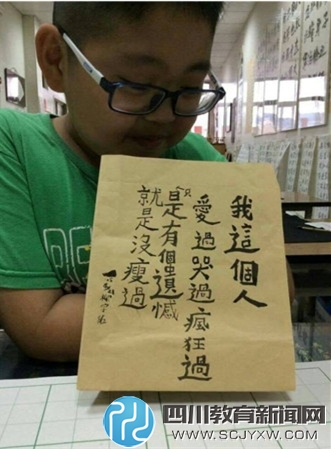 我這個人
愛過哭過瘋狂過
只是有個遺憾
就是沒瘦過
四川教育新闻网
WWW.SCJYXW.COM